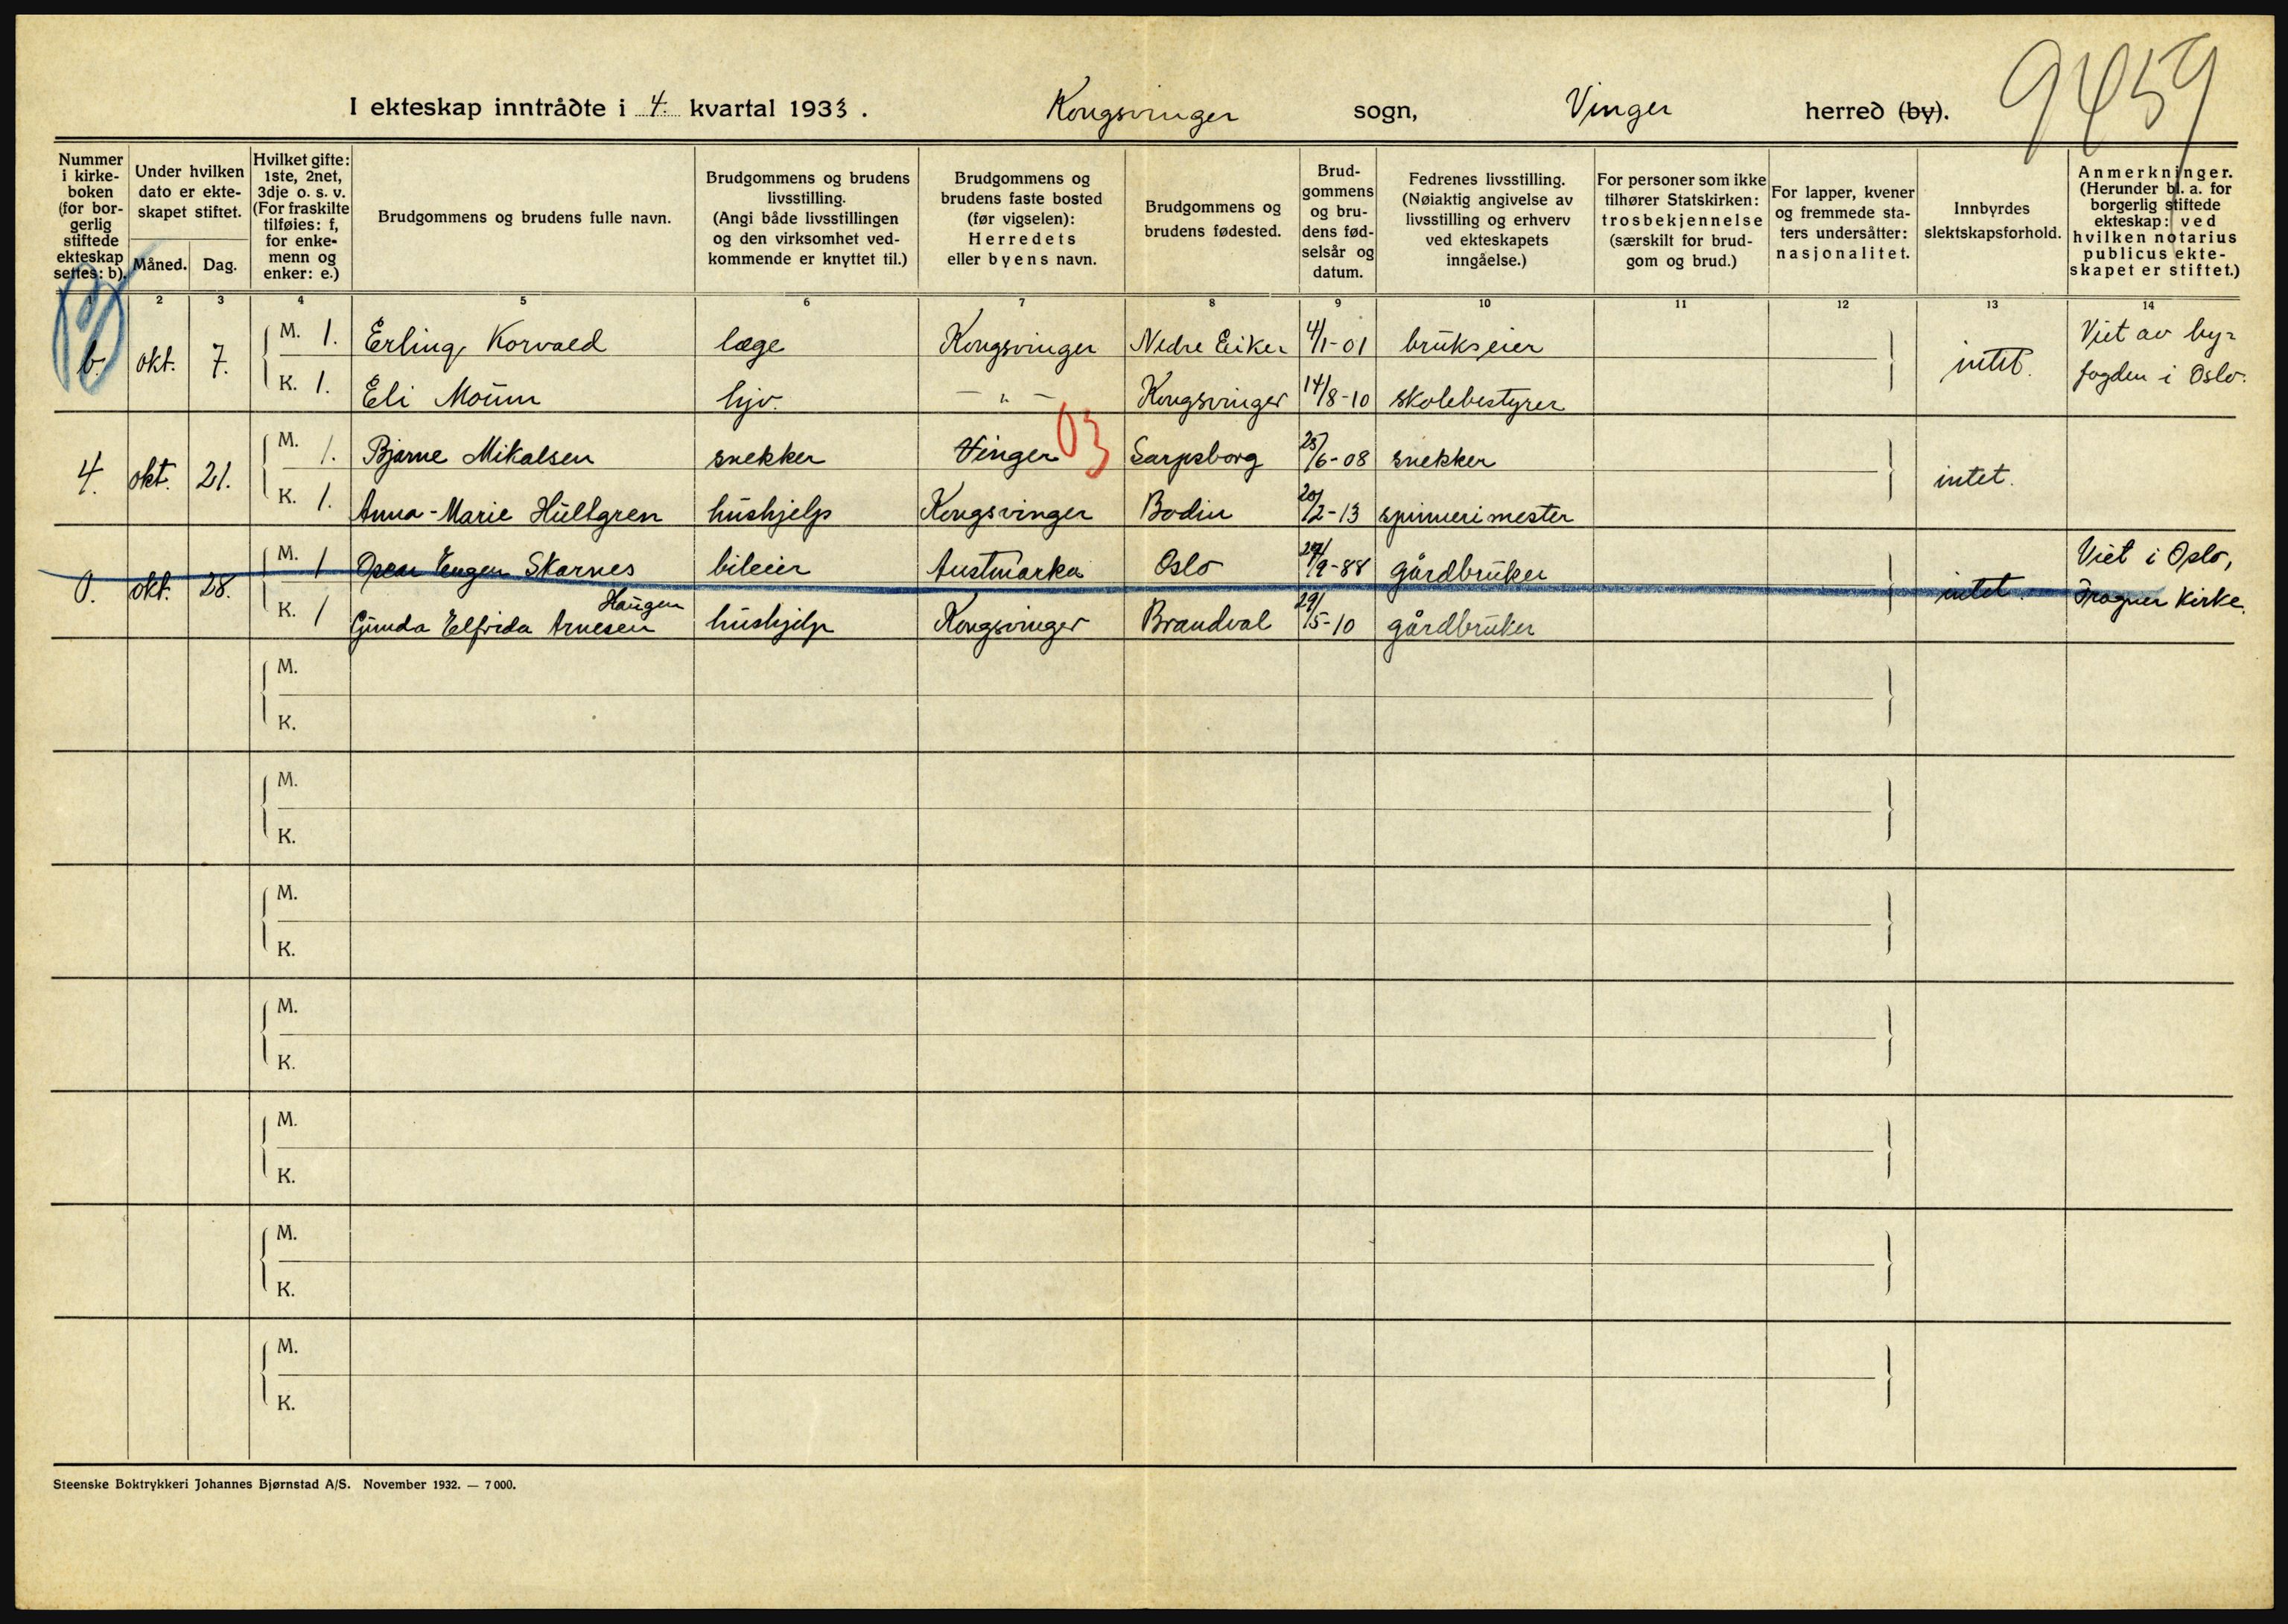 9459
I ekteskap inntrådte i 4. kvartal 1933. Kongsvinger sogn, Vinger herred (by).
Nummer i kirkeboken (for borgerlig stiftede ekteskap settes: b).
Under hvilken dato er ekteskapet stiftet.
Måned. Dag.
Hvilket gifte: 1ste, 2net, 3dje o. s. v. (For fraskilte tilføies: f, for enkemenn og enker: e.)
Brudgommens og brudens fulle navn.
Brudgommens og brudens livsstilling. (Angi både livsstillingen og den virksomhet vedkommende er knyttet til.)
Brudgommens og brudens faste bosted (før vigselen): Herredets eller byens navn.
Brudgommens og brudens fødested.
Brudgommens og brudens fødselsår og datum.
Fedrenes livsstilling. (Nøiaktig angivelse av livsstilling og erhverv ved ekteskapets inngåelse.)
For personer som ikke tilhører Statskirken: trosbekjennelse (særskilt for brudgom og brud.)
For lapper, kvener og fremmede staters undersåtter: nasjonalitet.
Innbyrdes slektskapsforhold.
Anmerkninger. (Herunder bl. a. for borgerlig stiftede ekteskap: ved hvilken notarius publicus ekteskapet er stiftet.)
1 2 3 4 5 6 7 8 9 10 11 12 13 14
b. okt. 7. M. 1. Erling Korvald læge Kongsvinger Nedre Eiker 4/1-01 brukseier intet. Viet av by=
K. 1. Eli Moum hjv. — " — Kongsvinger 14/8-10 skolebestyrer fogden i Oslo.
03
4. okt. 21. M. 1. Bjarne Mikalsen snekker Vinger Sarpsborg 25/6-08 snekker intet.
K. 1. Anna-Marie Hultgren hushjelp Kongsvinger Bodin 20/2-13 spinnerimester
0. okt. 28. M. 1 Oscar Eugen Skarnes bileier Austmarka Oslo /9-88 gårdbruker intet. Viet i Oslo,
Haugen
K. 1 Gunda Elfrida Arnesen hushjelp Kongsvinger Brandval 29/5-10 gårdbruker Frogner Kirke.
M.
K.
M.
K.
M.
K.
M.
K.
M.
K.
M.
K.
M.
K.
Steenske Boktrykkeri Johannes Bjørnstad A/S. November 1932. — 7000.